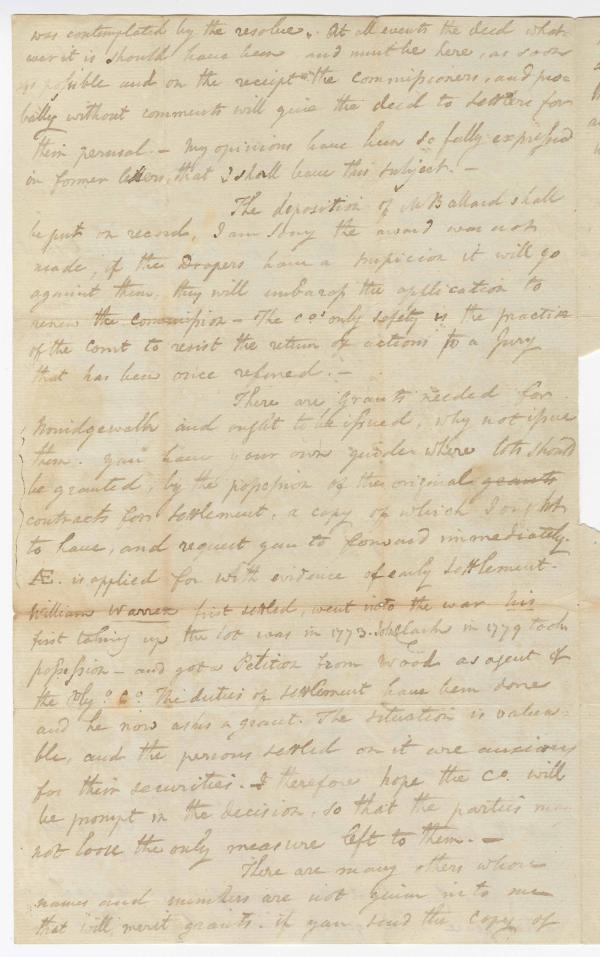 was contemplated by the resolve. At all events the deed what-
ever it is should have been and must be here, as soon
as possible and on the receipt the commissioners, and pro=
bably without comments will give the deed to settlers for
their perusal. – My opinions have been so fully expressed
in former letters, that I shall leave this subject. –
The deposition of Mr Ballard shall
be put on record, I am sorry the award was not
made, if the Drapers have a suspicion it will go
against them, they will embarass the application to
renew the commission – The Co's only safety is the practice
of the court to resist the return of actions to a Jury
that has been once refused. –
There are grants needed for
Norridgewalk and ought to be issued, why not issue
them. you have your own guide where lots should
be granted, by the possession of the original grants
contracts for settlement, a copy of which I ought
to have, and request you to forward immediately.
Æ. is applied for with evidence of early settlement.
William Warren first settled, went into the war his
first taking up the lot was in 1773. John Clark in 1779 took
possession – and got a Petition from Wood as agent of
the Ply.o Co. The duties of settlement have been done
and he now asks a grant. The situation is valua=
ble, and the persons settled on it are anxious
for their securities. I therefore hope the Co. will
be prompt in the decision, so that the parties may
not loose the only measure left to them. –
There are many others whose
names and numbers are not given in to me
that will merit grants. if you send the copy of